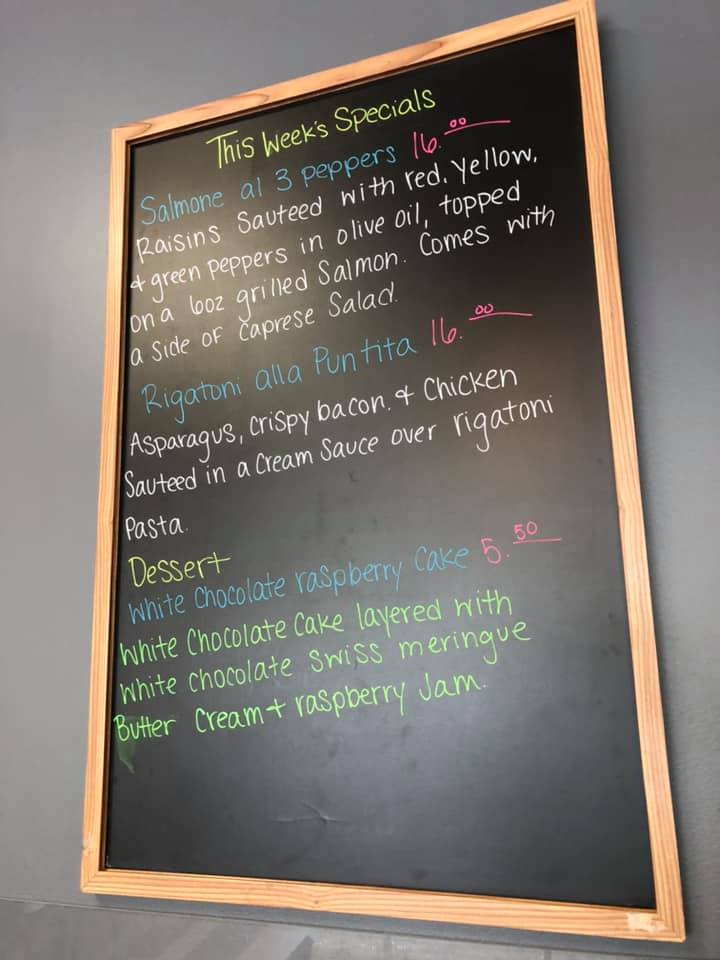 This Week's Specials
Salmone al 3 peppers 16.00
Raisins Sauteed with red, yellow,
+ green peppers in olive oil, topped
on a 6oz grilled Salmon. Comes with
a side of Caprese Salad.
Rigatoni alla Puntita 16.00
Asparagus, crispy bacon, & Chicken
Sauteed in a Cream Sauce over rigatoni
Pasta.
Dessert
White Chocolate raspberry Cake 5.50
White Chocolate Cake layered with
White chocolate swiss meringue
Butter Cream + raspberry Jam.